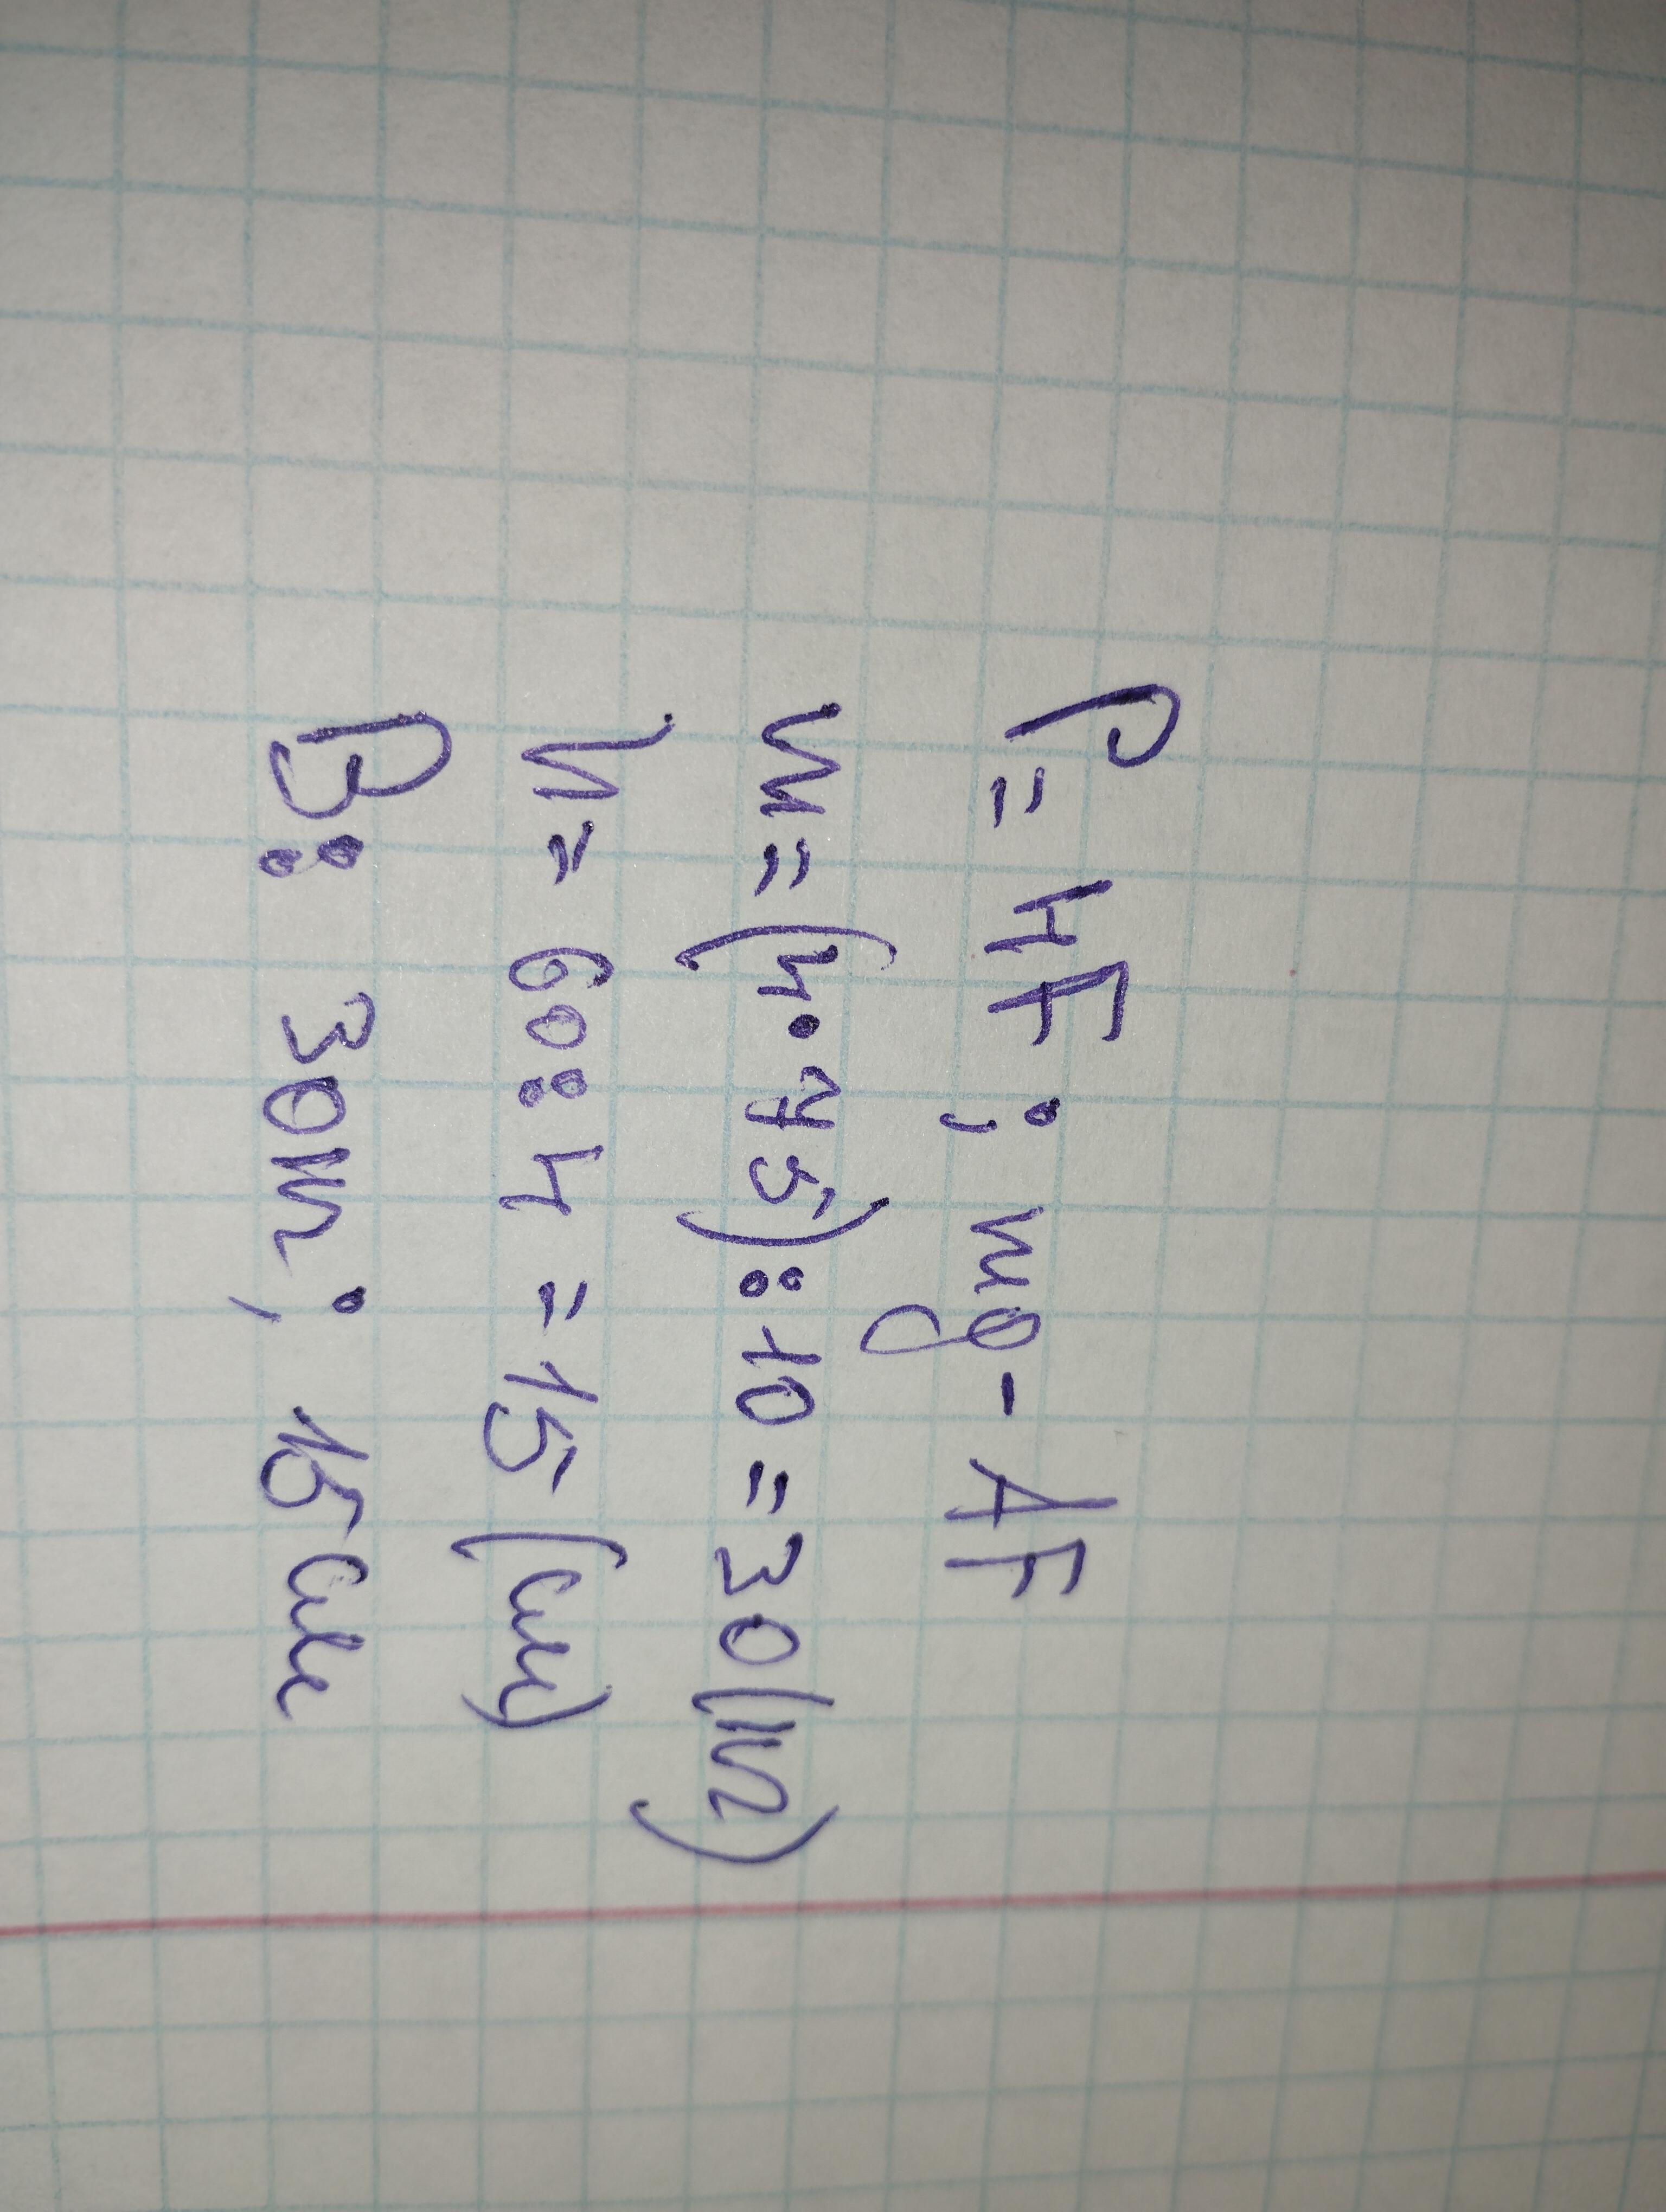 P = 4F ; mg - AF
m = (4·75):10 = 30 (кг)
h = 60:4 = 15 (см)
В: 30кг; 15см